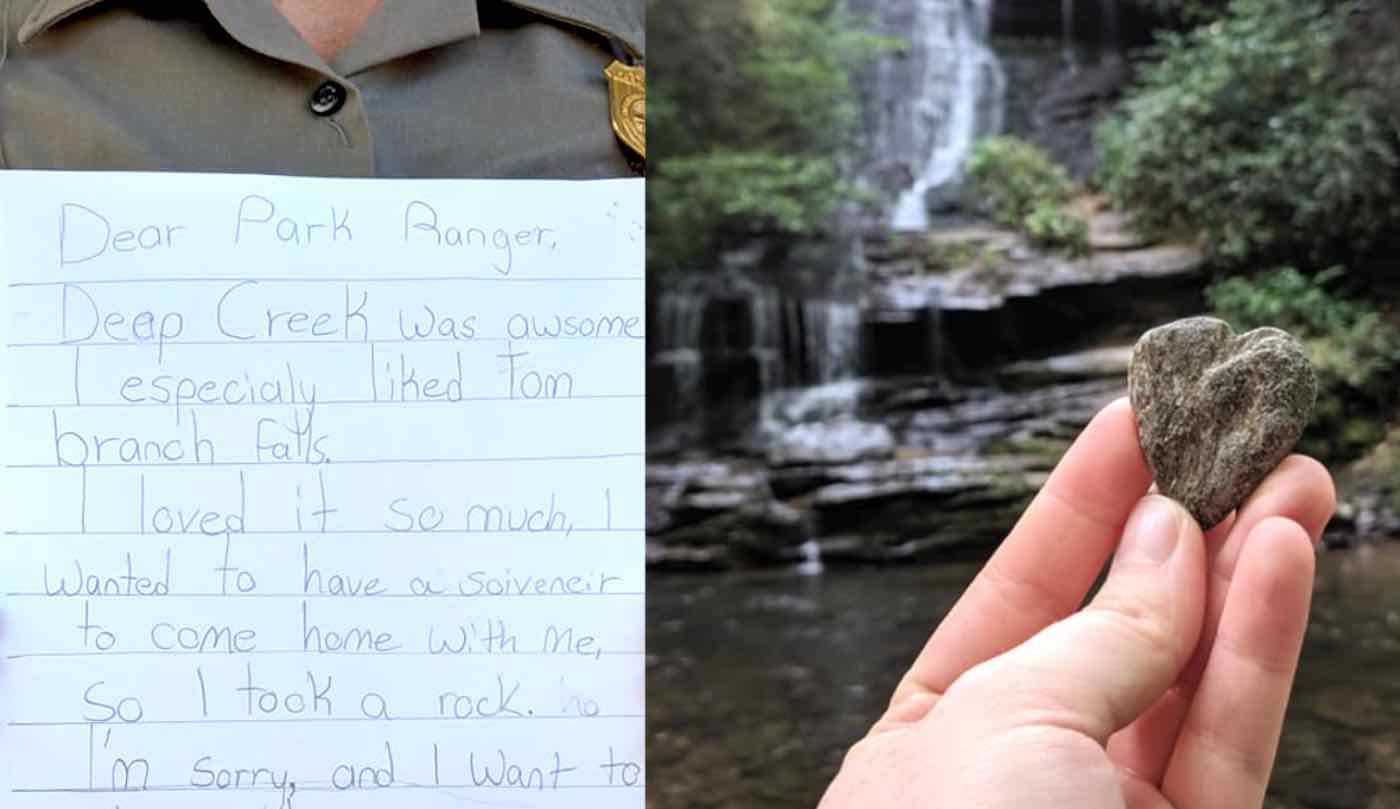 Dear Park Ranger,
Deap Creek was awsome
I especialy liked Tom
branch falls.
I loved it so much, I
wanted to have a soiveneir
to come home with me,
So I took a rock. ho
I'm sorry, and I want to